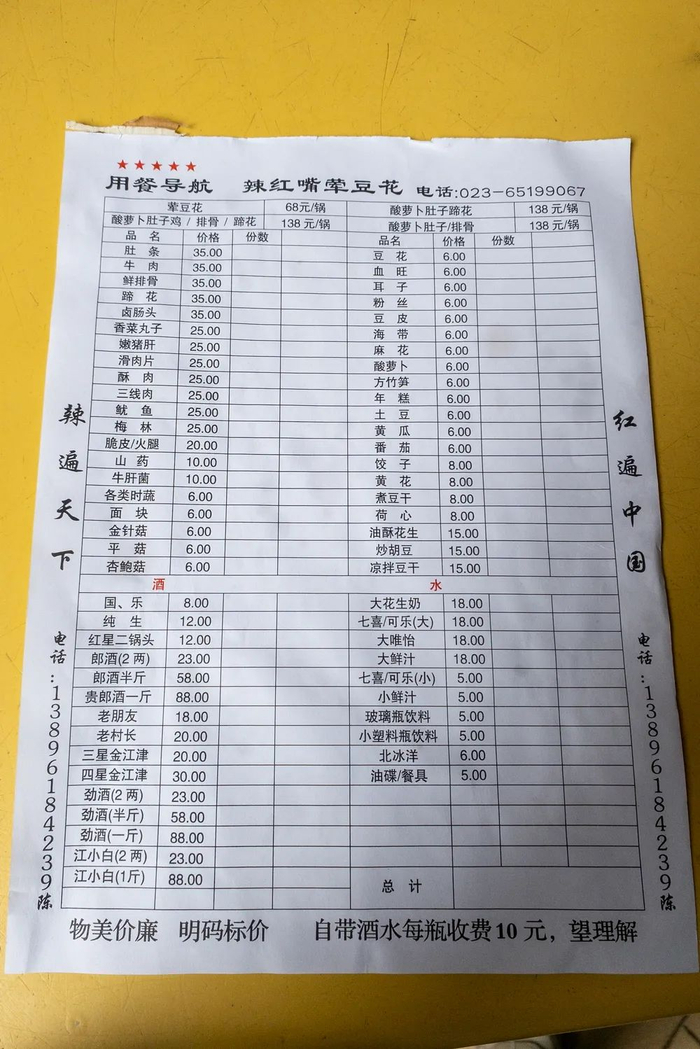 ★★★★★
用餐导航 辣红嘴荤豆花 电话:023-65199067
荤豆花 68元/锅 酸萝卜肚子蹄花 138元/锅
酸萝卜肚子鸡 / 排骨 / 蹄花 138元/锅 酸萝卜肚子/排骨 138元/锅
品名 价格 份数 品名 价格 份数
肚条 35.00 豆花 6.00
牛肉 35.00 血旺 6.00
鲜排骨 35.00 耳子 6.00
蹄花 35.00 粉丝 6.00
卤肠头 35.00 豆皮 6.00
香菜丸子 25.00 海带 6.00
嫩猪肝 25.00 麻花 6.00
滑肉片 25.00 酸萝卜 6.00
酥肉 25.00 方竹笋 6.00
三线肉 25.00 年糕 6.00
鱿鱼 25.00 土豆 6.00
梅林 25.00 黄瓜 6.00
脆皮/火腿 20.00 番茄 6.00
山药 10.00 饺子 8.00
牛肝菌 10.00 黄花 8.00
各类时蔬 6.00 煮豆干 8.00
面块 6.00 荷心 8.00
金针菇 6.00 油酥花生 15.00
平菇 6.00 炒胡豆 15.00
杏鲍菇 6.00 凉拌豆干 15.00
酒水
国、乐 8.00 大花生奶 18.00
纯生 12.00 七喜/可乐(大) 18.00
红星二锅头 12.00 大唯怡 18.00
郎酒(2两) 23.00 大鲜汁 18.00
郎酒半斤 58.00 七喜/可乐(小) 5.00
贵郎酒一斤 88.00 小鲜汁 5.00
老朋友 18.00 玻璃瓶饮料 5.00
老村长 20.00 小塑料瓶饮料 5.00
三星金江津 20.00 北冰洋 6.00
四星金江津 30.00 油碟/餐具 5.00
劲酒(2两) 23.00
劲酒(半斤) 58.00
劲酒(一斤) 88.00
江小白(2两) 23.00
江小白(1斤) 88.00 总计
辣遍天下
电话:13896184239陈
红遍中国
电话:13896184239陈
物美价廉 明码标价 自带酒水每瓶收费10元，望理解